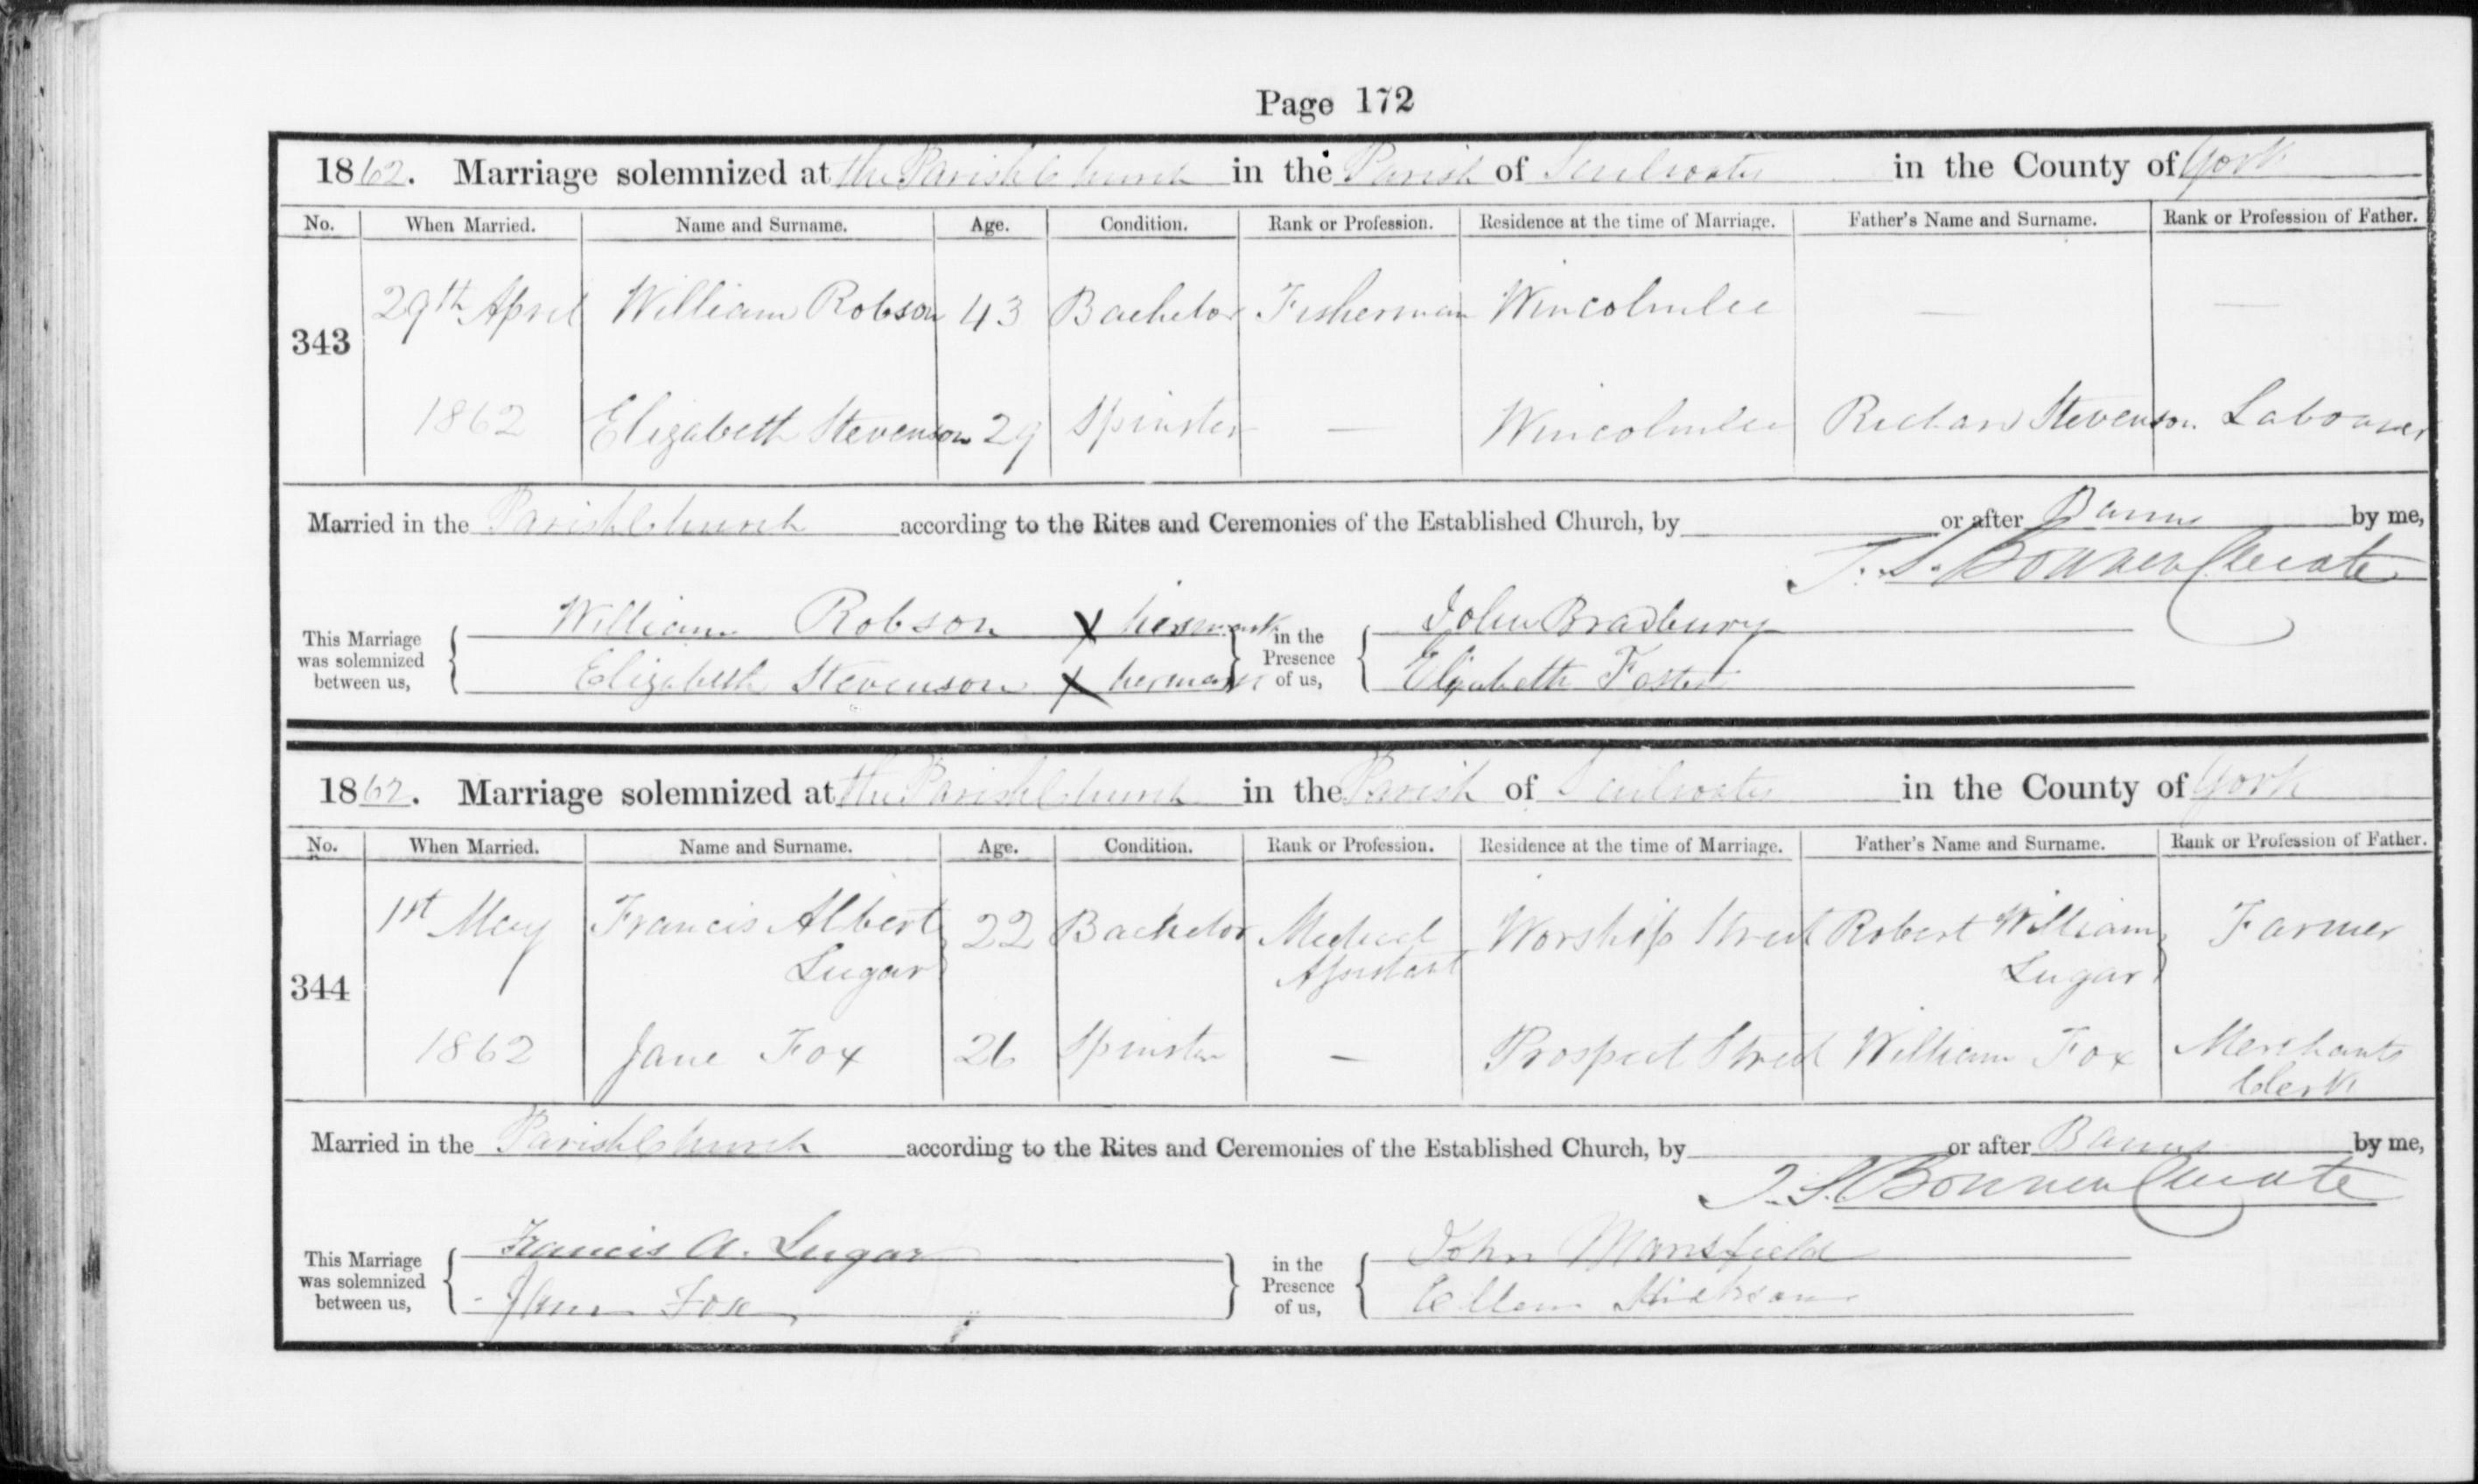 Page 172
1862. Marriage solemnized at the Parish Church in the Parish of Sculcoates in the County of York
No. When Married. Name and Surname. Age. Condition. Rank or Profession. Residence at the time of Marriage. Father's Name and Surname. Rank or Profession of Father.
29th April William Robson 43 Bachelor Fisherman Wincolmlee — —
343
1862 Elizabeth Stevenson 29 Spinster — Wincolmlee Stevenson Labourer
Married in the Parish Church according to the Rites and Ceremonies of the Established Church, by or after Banns by me,
Curate
This Marriage was solemnized between us, { William Robson X his mark } in the Presence of us, { John Bradbury
Elizabeth Stevenson X her mark Elizabeth Foster
1862. Marriage solemnized at the Parish Church in the Parish of Sculcoates in the County of York
No. When Married. Name and Surname. Age. Condition. Rank or Profession. Residence at the time of Marriage. Father's Name and Surname. Rank or Profession of Father.
1st May Francis Albert 22 Bachelor Medical Worship Street Robert William Farmer
Lugar Assistant Lugar
344
1862 Jane Fox 26 Spinster — Prospect Street William Fox Merchants
Clerk
Married in the Parish Church according to the Rites and Ceremonies of the Established Church, by or after Banns by me,
Curate
This Marriage was solemnized between us, { Francis A. Lugar } in the Presence of us, { John Mansfield
Jane Fox Ellen